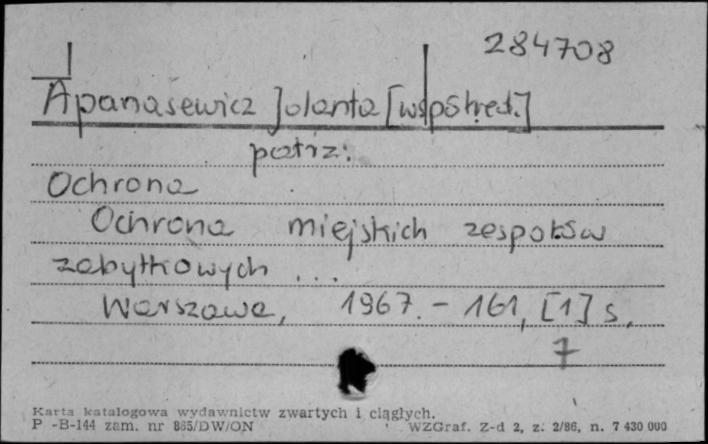 284708
Apanasewicz Jolanta [współred.]
patrz:
Ochrona
Ochrona miejskich zespołów
zabytkowych ...
Warszawa, 1967. - 161, [1] s.
7
Karta katalogowa wydawnictw zwartych i ciągłych.
P -B-144 zam. nr 885/DW/ON WZGraf. Z-d 2, z. 2/86, n. 7 430 000